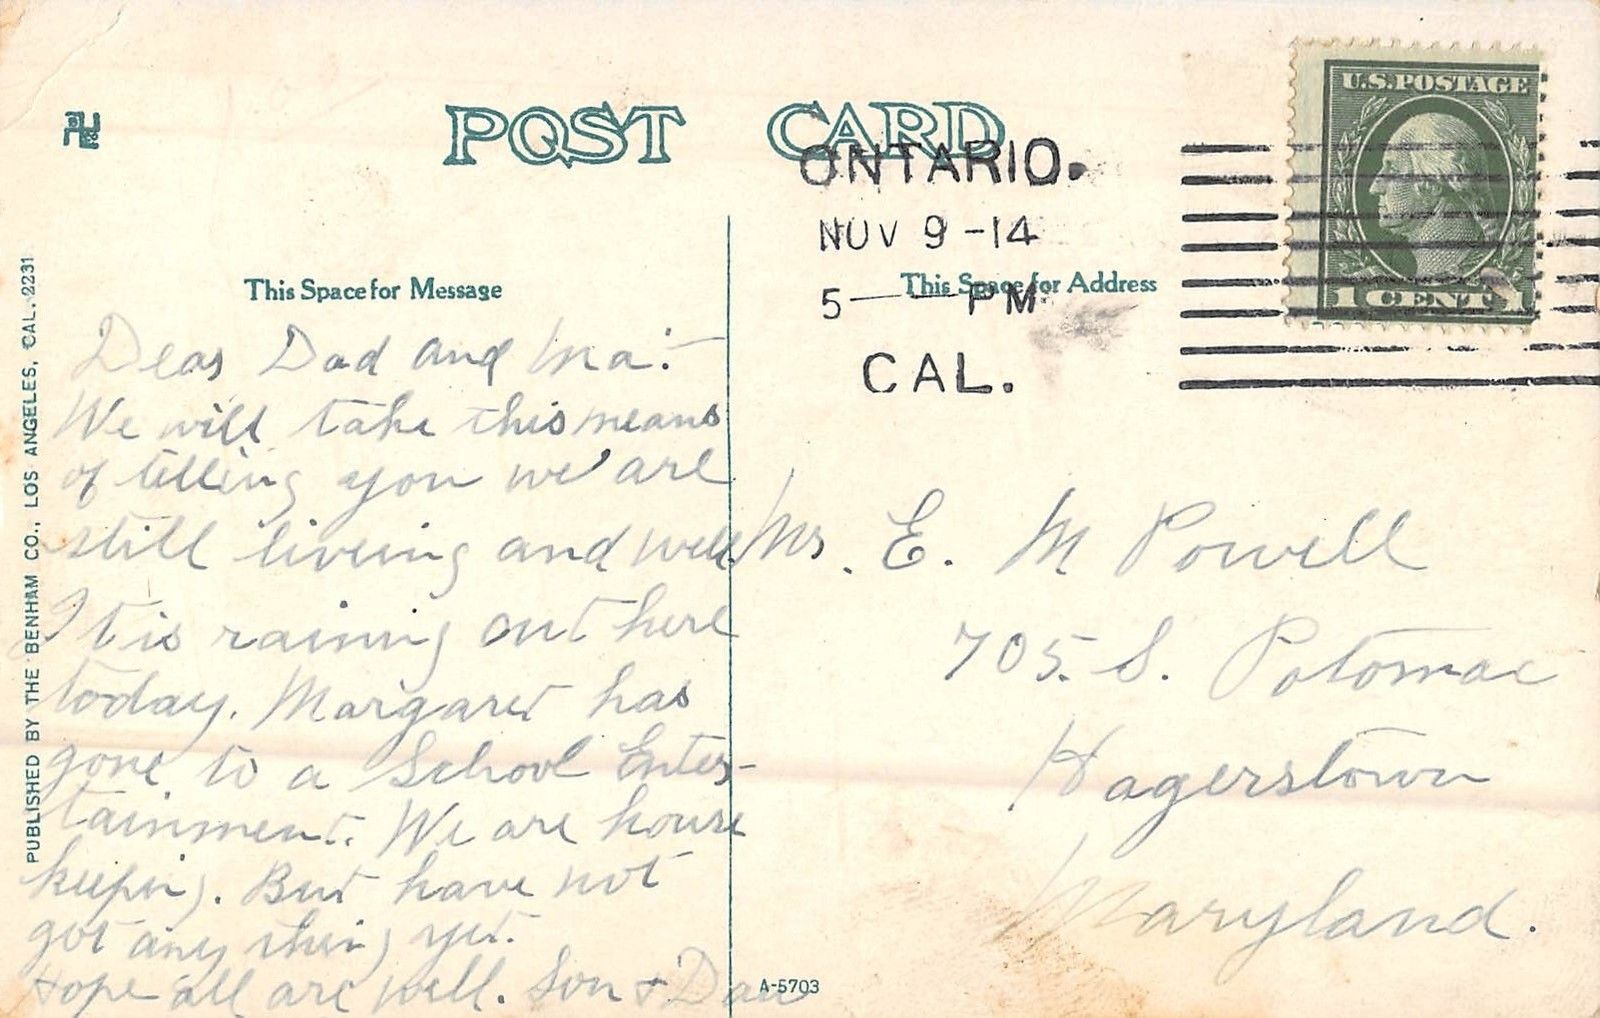 POST CARD
ONTARIO.
NOV 9 -14
5 — PM
CAL.
U.S. POSTAGE
1 CENT 1
This Space for Message
This Space for Address
PUBLISHED BY THE BENHAM CO., LOS ANGELES, CAL. 2231
Dear Dad and Ma:-
We will take this means
of telling you we are
still liveing and well.
It is raining out here
today. Margaret has
gone to a School Enter-
tainment. We are house
keeping. But have not
got any thing yet.
Hope all are well. Son & Dau
Mr. E. M Powell
705. S. Potomac
Hagerstown
Maryland.
A-5703